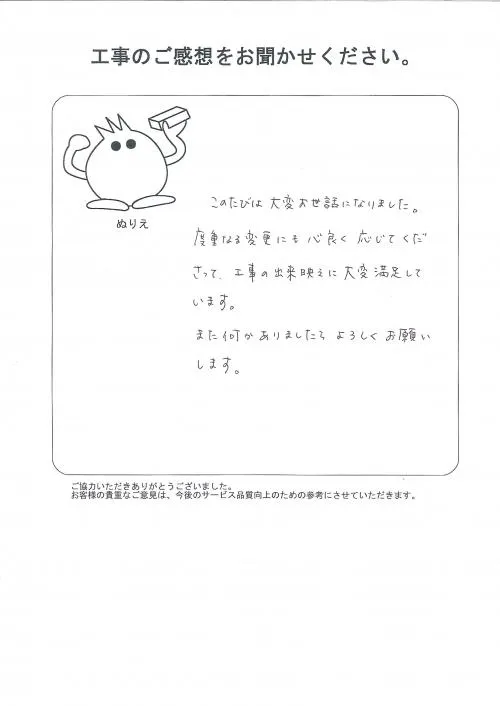 工事のご感想をお聞かせください。
ぬりえ
このたびは大変お世話になりました。
度重なる変更にも心良く応じてくだ
さって、工事の出来映えに大変満足して
います。
また何かありましたら よろしくお願い
します。
ご協力いただきありがとうございました。
お客様の貴重なご意見は、今後のサービス品質向上のための参考にさせていただきます。